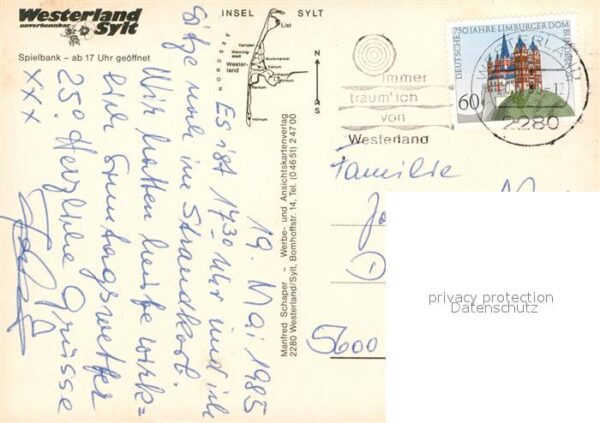 Westerland
unverkennbar
Sylt
Spielbank – ab 17 Uhr geöffnet
INSEL SYLT
NORDSEE
List
Kampen
Wenning-
stedt
Wester-
land
Munkmarsch
Keitum
Rantum
Hörnum
N
S
19. Mai 1985
Es ist 17.30 Uhr und ich
sitze im Strandkorb.
Wir hatten heute wirk=
lich Sonntagswetter
25° Herzliche Grüsse
xxx
Manfred Schaper – Werbe- und Ansichtskartenverlag
2280 Westerland/Sylt, Bomhoffstr. 14, Tel. (0 46 51) 2 47 00
Immer
träum' ich
von
Westerland
DEUTSCHE BUNDESPOST
750 JAHRE LIMBURGER DOM
60
WESTERLAND
2280
Familie
5600
privacy protection
Datenschutz